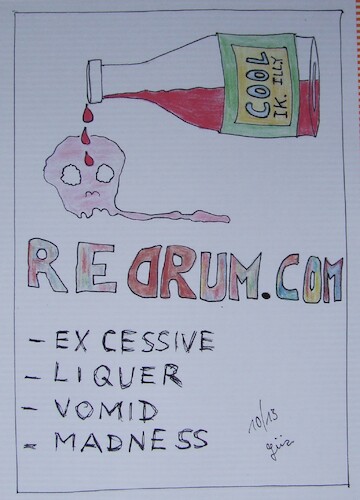 COOL
IK. ILLY
REDRUM.COM
- EXCESSIVE
- LIQUER
- VOMID
- MADNESS
10/13